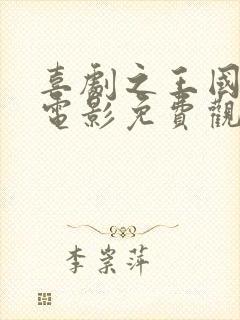 喜劇之王國
電影免費觀
李崇萍